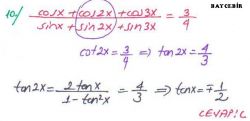 BAY ÇEBİR
10) (cosx + cos2x + cos3x)/(sinx + sin2x + sin3x) = 3/4
cot2x = 3/4 ⇒ tan2x = 4/3
tan2x = 2tanx/(1 - tan²x) = 4/3 ⇒ tanx = ∓ 1/2
CEVAP: C